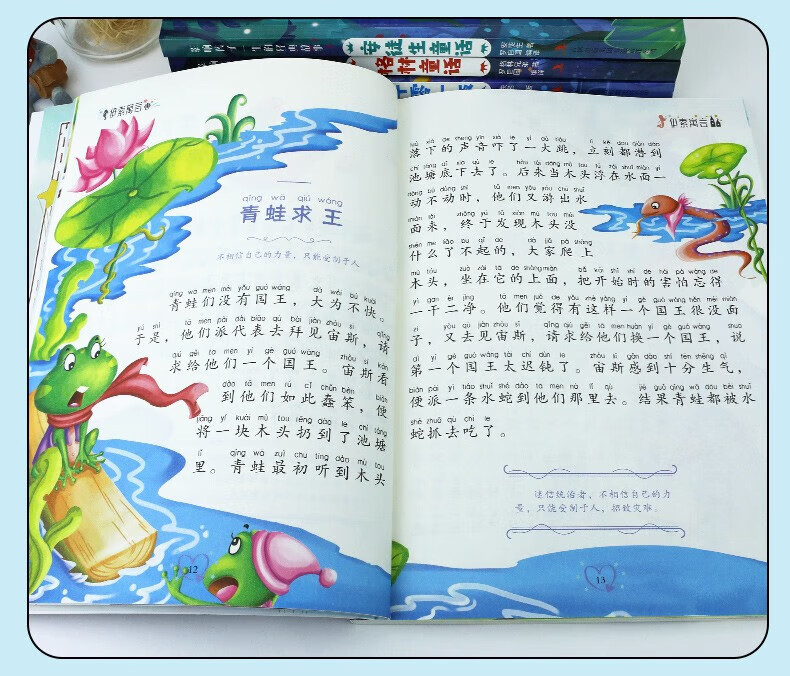 安徒生童话
格林童话
伊索寓言
qīng wā qiú wáng
青蛙求王
不相信自己的力量，只能受制于人
qīng wā men méi yǒu guó wáng dà wéi bú kuài
青蛙们没有国王，大为不快。
yú shì tā men pài dài biǎo qù bài jiàn zhòu sī qǐng
于是，他们派代表去拜见宙斯，请
qiú gěi tā men yí gè guó wáng zhòu sī kàn
求给他们一个国王。宙斯看
dào tā men rú cǐ chǔn bèn biàn
到他们如此蠢笨，便
jiāng yí kuài mù tou rēng dào le chí táng
将一块木头扔到了池塘
lǐ qīng wā zuì chū tīng dào mù tou
里。青蛙最初听到木头
12
伊索寓言
luò xià de shēng yīn xià le yí dà tiào lì kè dōu qián dào
落下的声音吓了一大跳，立刻都潜到
chí táng dǐ xià qù le hòu lái dāng mù tou fú zài shuǐ miàn yí
池塘底下去了。后来当木头浮在水面一
dòng bú dòng shí tā men yòu yóu chū shuǐ
动不动时，他们又游出水
miàn lái zhōng yú fā xiàn mù tou méi
面来，终于发现木头没
shén me liǎo bu qǐ de dà jiā pá shàng
什么了不起的，大家爬上
mù tou zuò zài tā de shàng miàn bǎ kāi shǐ shí de hài pà wàng de
木头，坐在它的上面，把开始时的害怕忘得
yì gān èr jìng tā men jué de yǒu zhè yàng yí gè guó wáng hěn méi miàn
一干二净。他们觉得有这样一个国王很没面
zi yòu qù jiàn zhòu sī qǐng qiú gěi tā men huàn yí gè guó wáng shuō
子，又去见宙斯，请求给他们换一个国王，说
dì yī gè guó wáng tài chí dùn le zhòu sī gǎn dào shí fēn shēng qì
第一个国王太迟钝了。宙斯感到十分生气，
biàn pài yì tiáo shuǐ shé dào tā men nà lǐ qù jié guǒ qīng wā dōu bèi shuǐ
便派一条水蛇到他们那里去。结果青蛙都被水
shé zhuā qù chī le
蛇抓去吃了。
迷信统治者，不相信自己的力
量，只能受制于人，招致灾难。
13